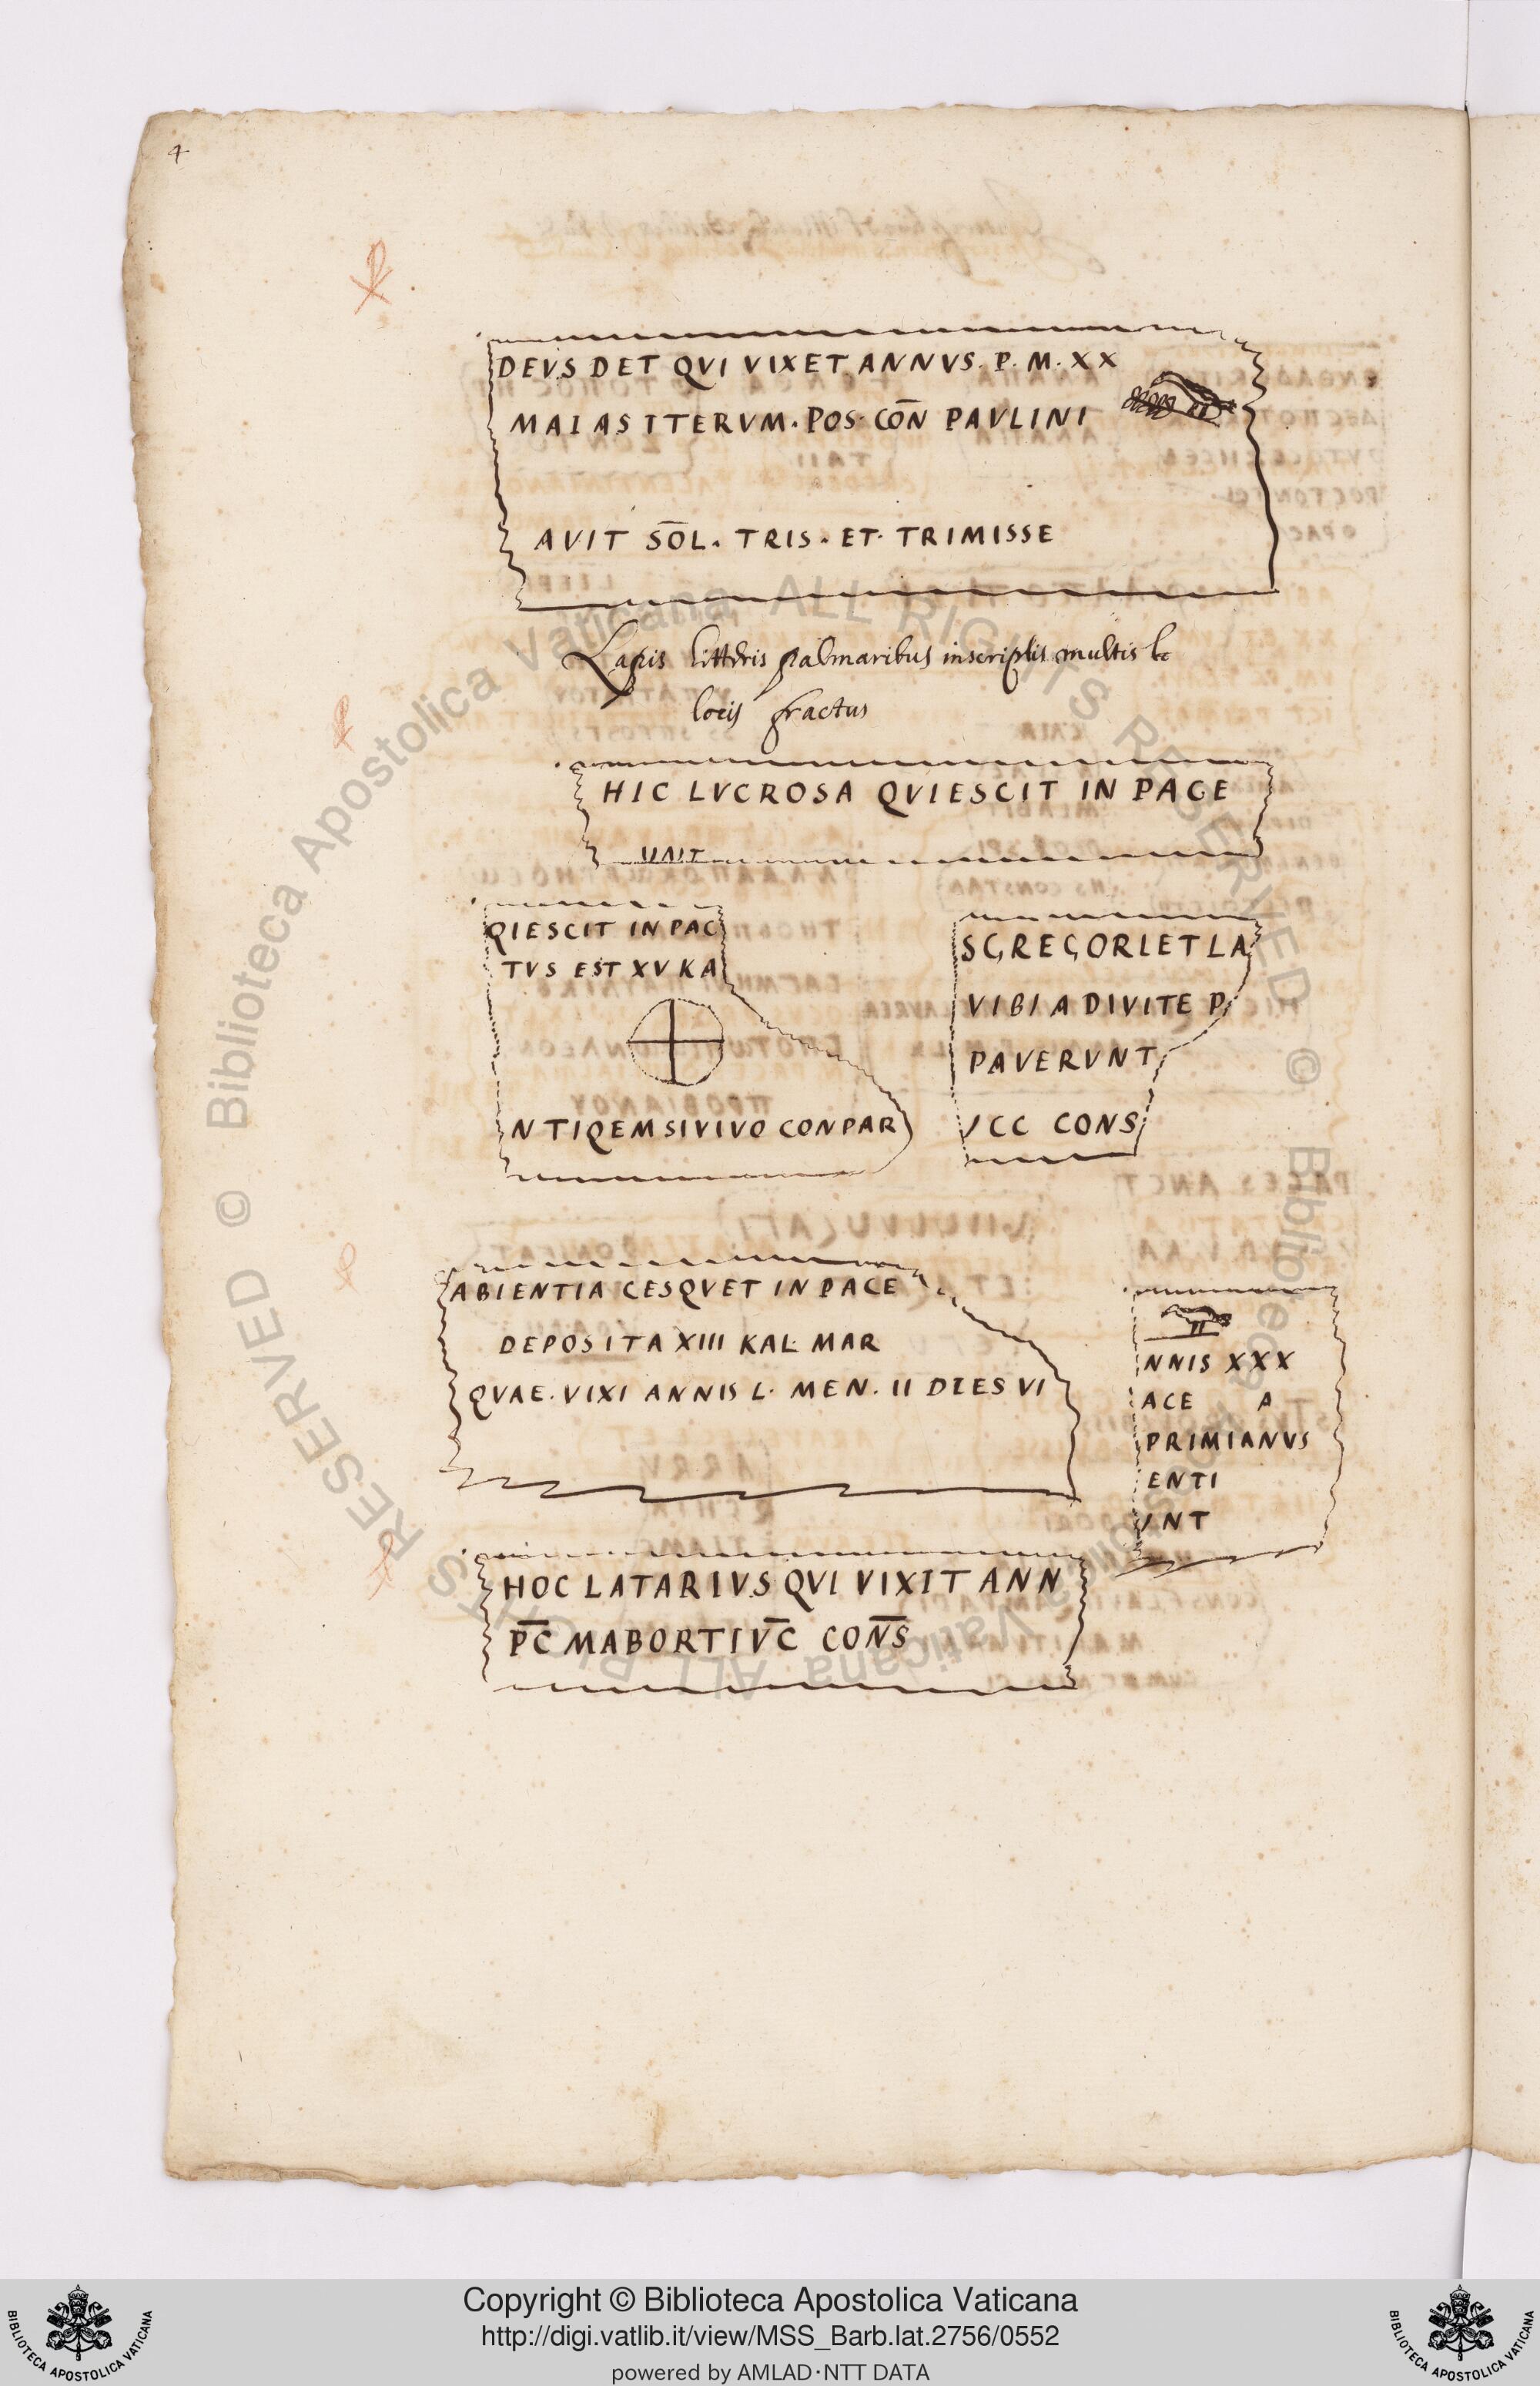 4
DEVS DET QVI VIXET ANNVS. P. M. XX
MAIAS ITERVM. POS. CŌN PAVLINI
AVIT SŌL. TRIS. ET. TRIMISSE
Lapis litteris palmaribus inscriptis multis lc
locis fractus
HIC LVCROSA QVIESCIT IN PACE
QIESCIT IN PAC
TVS EST XV KA
NTIQEMSIVIVO CONPAR
SGREGORI ET LA
VIBI A DIVITE P
PAVERVNT
VCC CONS
ABIENTIA CESQVET IN PACE
DEPOSITA XIII KAL MAR
QVAE. VIXI ANNIS L. MEN. II DIES VI
NNIS XXX
ACE A
PRIMIANVS
ENTI
VNT
HOC LATARIVS QVI VIXIT ANN
P̄C MABORTI V̄C CON̄S
Copyright © Biblioteca Apostolica Vaticana
http://digi.vatlib.it/view/MSS_Barb.lat.2756/0552
powered by AMLAD·NTT DATA
BIBLIOTECA APOSTOLICA VATICANA
BIBLIOTECA APOSTOLICA VATICANA
Biblioteca Apostolica Vaticana ALL RIGHTS RESERVED ©
Biblioteca Apostolica Vaticana ALL RIGHTS RESERVED ©